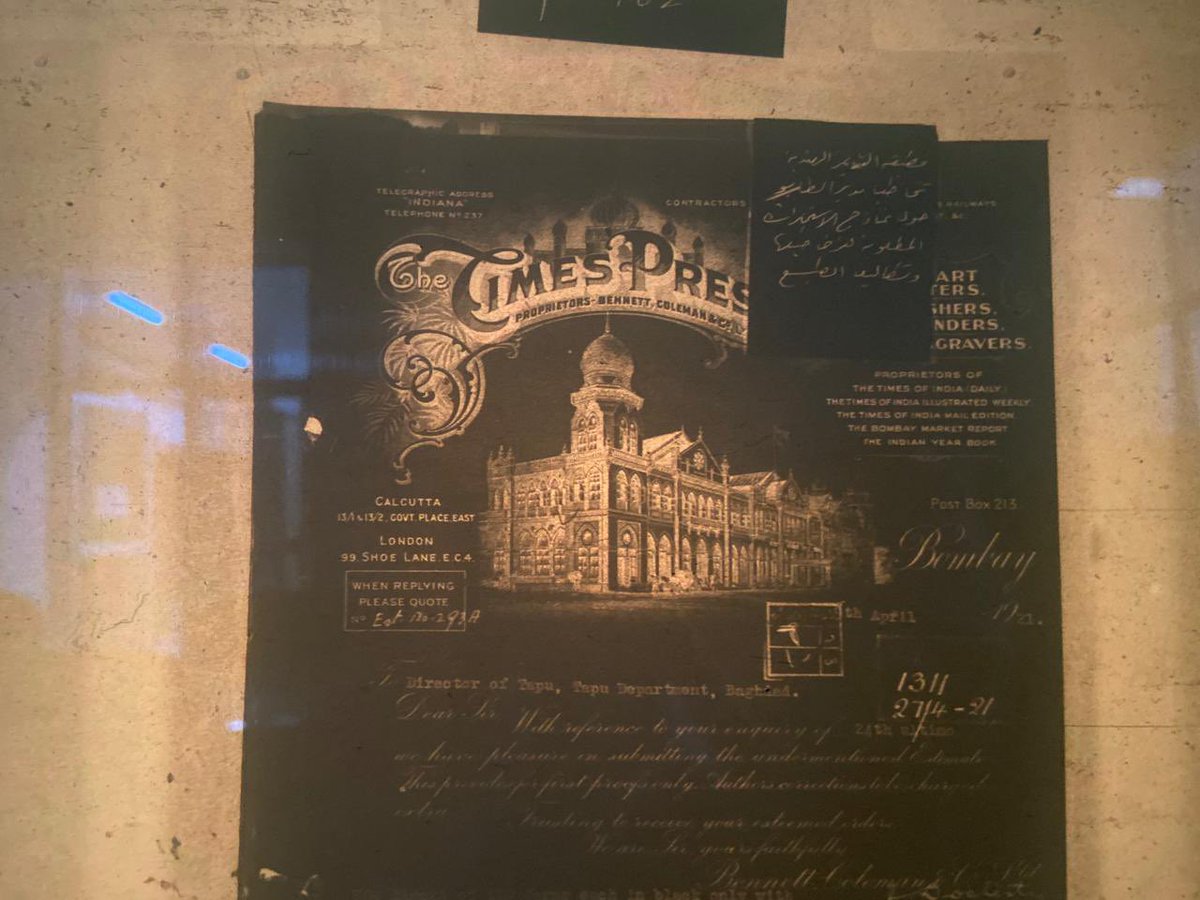 162
TELEGRAPHIC ADDRESS
"INDIANA"
TELEPHONE Nº 237
CONTRACTORS
RAILWAYS
The TIMES PRES
PROPRIETORS-BENNETT, COLEMAN & Co
المطلوبة
وتكاليف الطبع
ART
TERS,
SHERS,
NDERS,
GRAVERS.
PROPRIETORS OF
THE TIMES OF INDIA (DAILY)
THE TIMES OF INDIA ILLUSTRATED WEEKLY
THE TIMES OF INDIA MAIL EDITION
THE BOMBAY MARKET REPORT
THE INDIAN YEAR BOOK
CALCUTTA
13/1 & 13/2, GOVT. PLACE, EAST
LONDON
99, SHOE LANE, E.C.4.
WHEN REPLYING
PLEASE QUOTE
Nº Est No-293A
POST BOX 213
Bombay
th April 1921.
To Director of Tapu, Tapu Department, Baghdad.
1311
27/4-21
Dear Sir,
With reference to your enquiry of 24th ultimo
we have pleasure in submitting the undermentioned Estimate
This provides for first proofs only. Authors corrections to be charged
extra.
Trusting to receive your esteemed orders,
We are, Sir, yours faithfully,
Bennett, Coleman &
in black only with